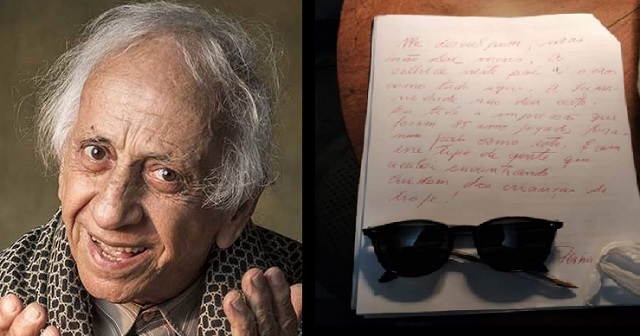 Me desculpem, mas
não deu mais. A
velhice neste país é o caos
como tudo aqui. A huma-
nidade não deu certo.
Eu tive a impressão que
foram 85 anos jogados fora
num país como este. E com
esse tipo de gente que
acabei encontrando
Cuidem das crianças de
hoje!